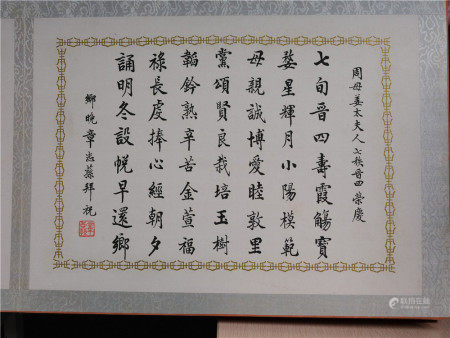 周母姜太夫人七秩晋四榮慶
七旬晋四壽霞觴寶
婺星輝月小陽模範
母親誠博愛睦敦里
黨頌賢良栽培玉樹
韜鈐熟辛苦金萱福
祿長虔捧心經朝夕
誦明冬設帨早還鄉
鄉晚章志蓀拜祝
联拍在线